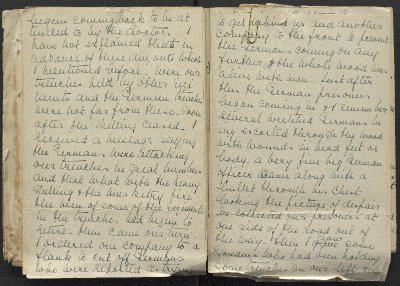 began coming back to be at
tended to by the doctor. I
have not explained that in
advance of these our outposts which
I mentioned before were our
trenches held by other regi
ments and the German trenches
were not far from these. Soon
after the shelling ceased I
received a message saying
the Germans were attacking
our trenches in great numbers
and that what with the heavy
shelling & the heavy rifle fire
the men of some of the regiments
in the trenches had begun to
retire. Then came our turn
I ordered one company to a
flank to cut off Germans
who were reported
to get behind us and another
company to the front to prevent
the Germans coming on any
further, & the whole wood was
alive with men. Just after
this the German prisoners
began coming in & I remember
several wretched Germans be
ing escorted through the wood
with wounds in head feet or
body. a very fine big German
officer came along with a
bullet through his chest
looking the picture of despair
we collected our prisoners at
one side of the road out of
the way. Then I saw some
who had been holding
some trenches on our left